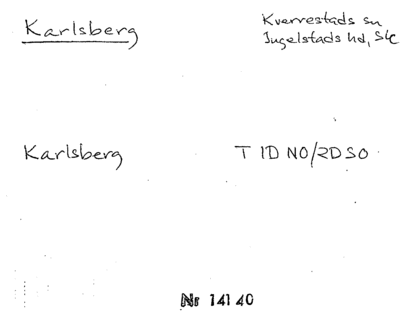 Karlsberg
Kverrestads sn
Ingelstads hd, Sk
Karlsberg T 1D NO/2D SO
Nr 141 40